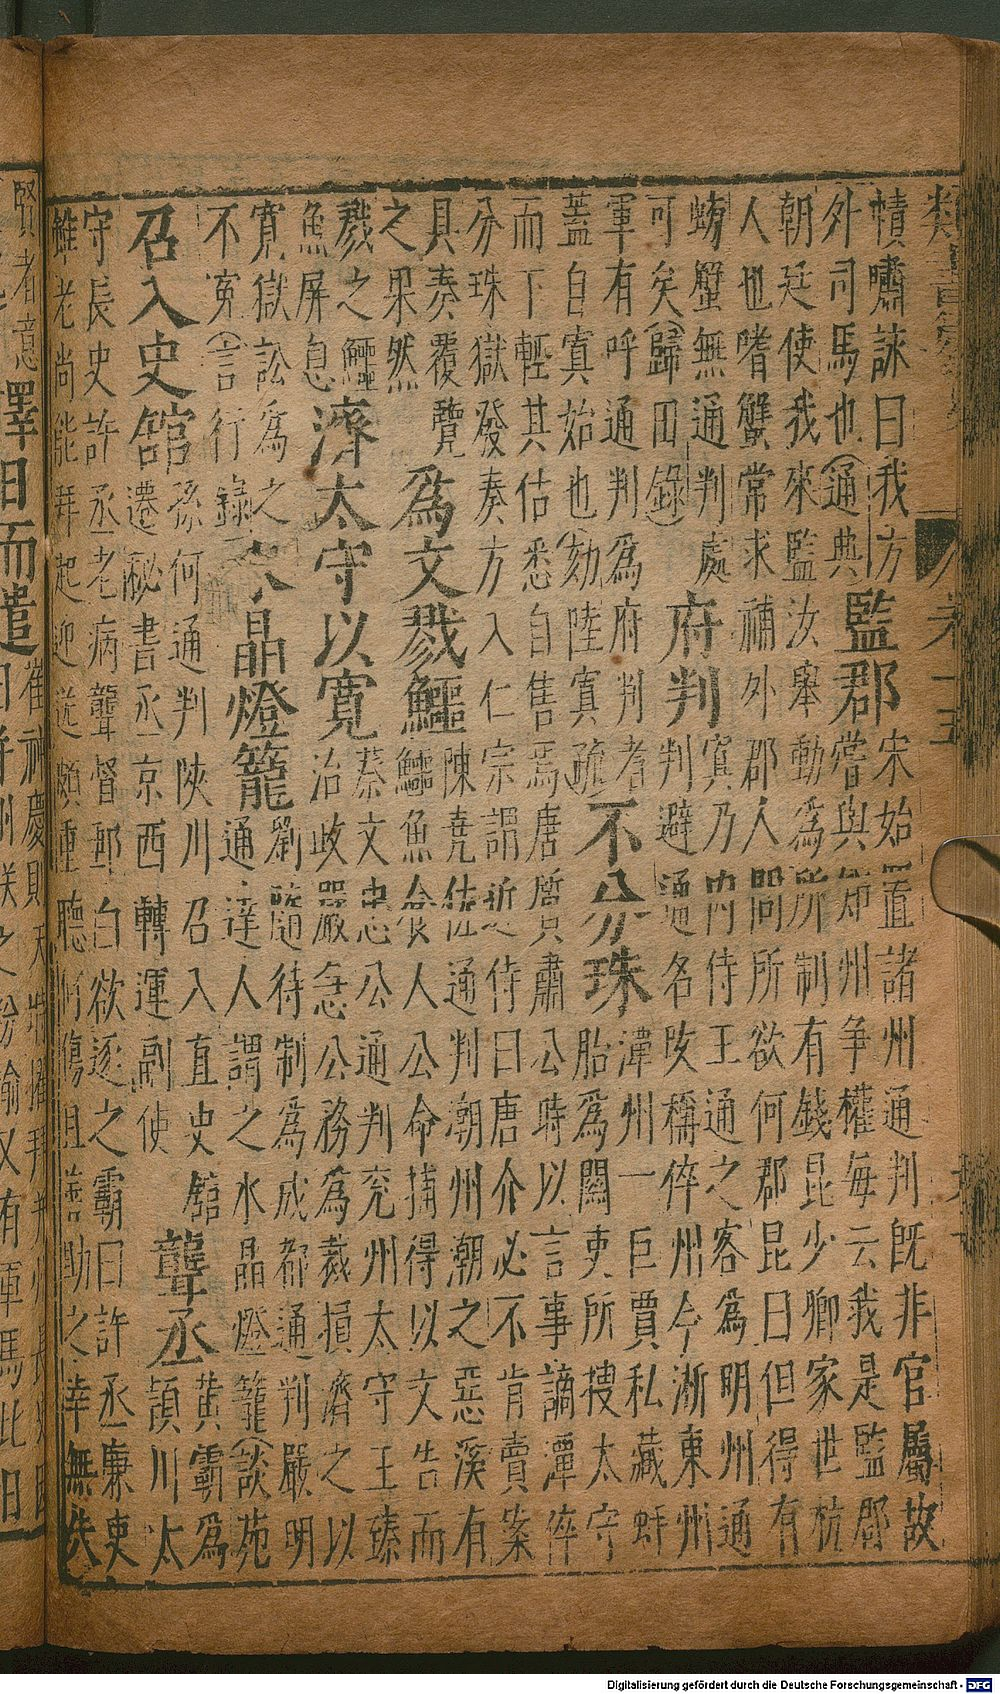 幘嘯詠曰我方
外司馬也(通典
監郡
宋始置諸州通判既非官屬故
嘗與知州爭權每云我是監郡
朝廷使我來監汝舉動爲所制有錢昆少卿家世杭
人也嗜蟹常求補外郡人問所欲何郡昆曰但得有
螃蟹無通判處
可矣(歸田錄
府判
寘乃內侍王通之客爲明州通
判避通名改稱倅州今淅東州
軍有呼通判爲府判者
蓋自寘始也(劾陸寘疏
不分珠
潭州一巨賈私藏蚌
胎爲關吏所搜太守
而下輕其估悉自售焉唐質肅公時以言事謫潭倅
分珠獄發奏方入仁宗謂近侍曰唐介必不肯賣案
具奏覆覽
之果然
爲文戮鱷
陳堯佐通判潮州潮之惡溪有
鱷魚食人公命捕得以文告而
戮之鱷
魚屏息
濟太守以寬
蔡文忠公通判兗州太守王臻
治政嚴急公務爲裁損濟之以
寬獄訟爲之
不寃(言行錄
水晶燈籠
劉隨待制爲成都通判嚴明
通達人謂之水晶燈籠(談苑
召入史舘
孫何通判陝川召入直史舘
遷秘書丞京西轉運副使
聾丞
黃霸爲
潁川太
守長史許丞老病聾督郵白欲逐之霸曰許丞廉吏
雖老尚能拜起迎送頗重聽何傷且善助之幸無失
賢者意
擇日而遣
崔神慶則天
Digitalisierung gefördert durch die Deutsche Forschungsgemeinschaft - DFG